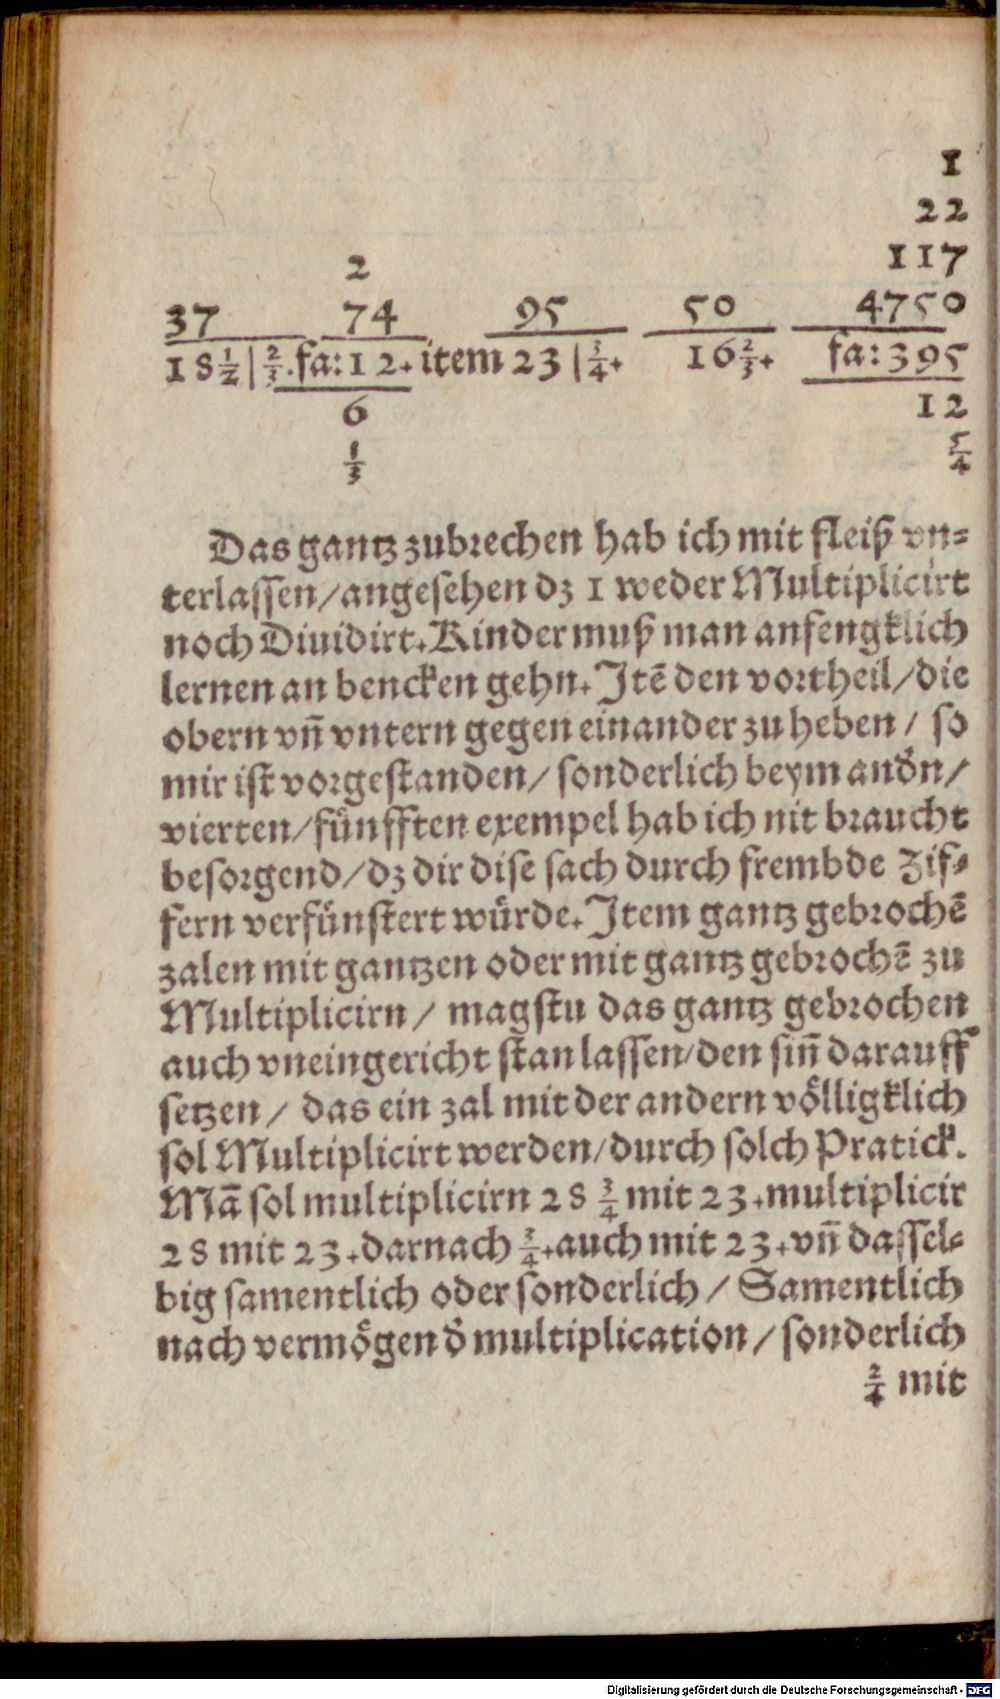 1
22
2 117
37 74 95 50 4750
18 1/2 | 2/3 . fa: 12. item 23 | 3/4. 16 2/3. fa: 395
6 12
1/3 5/4
Das gantz zubrechen hab ich mit fleiß vn=
terlassen/angesehen dz 1 weder Multiplicirt
noch Diuidirt. Kinder muß man anfengklich
lernen an bencken gehn. Itē den vortheil/die
obern vn̄ vntern gegen einander zu heben / so
mir ist vorgestanden/ sonderlich beym andn̄/
vierten/fünfften exempel hab ich nit braucht
besorgend/dz dir dise sach durch frembde Zif=
fern verfünstert würde. Item gantz gebrochē
zalen mit gantzen oder mit gantz gebrochē zu
Multiplicirn / magstu das gantz gebrochen
auch vneingericht stan lassen/den sin̄ darauff
setzen / das ein zal mit der andern völligklich
sol Multiplicirt werden/durch solch Pratick.
Mā sol multiplicirn 28 3/4 mit 23. multiplicir
28 mit 23. darnach 3/4. auch mit 23. vn̄ dassel=
big samentlich oder sonderlich / Samentlich
nach vermögen d̄ multiplication / sonderlich
2/4 mit
Digitalisierung gefördert durch die Deutsche Forschungsgemeinschaft - DFG